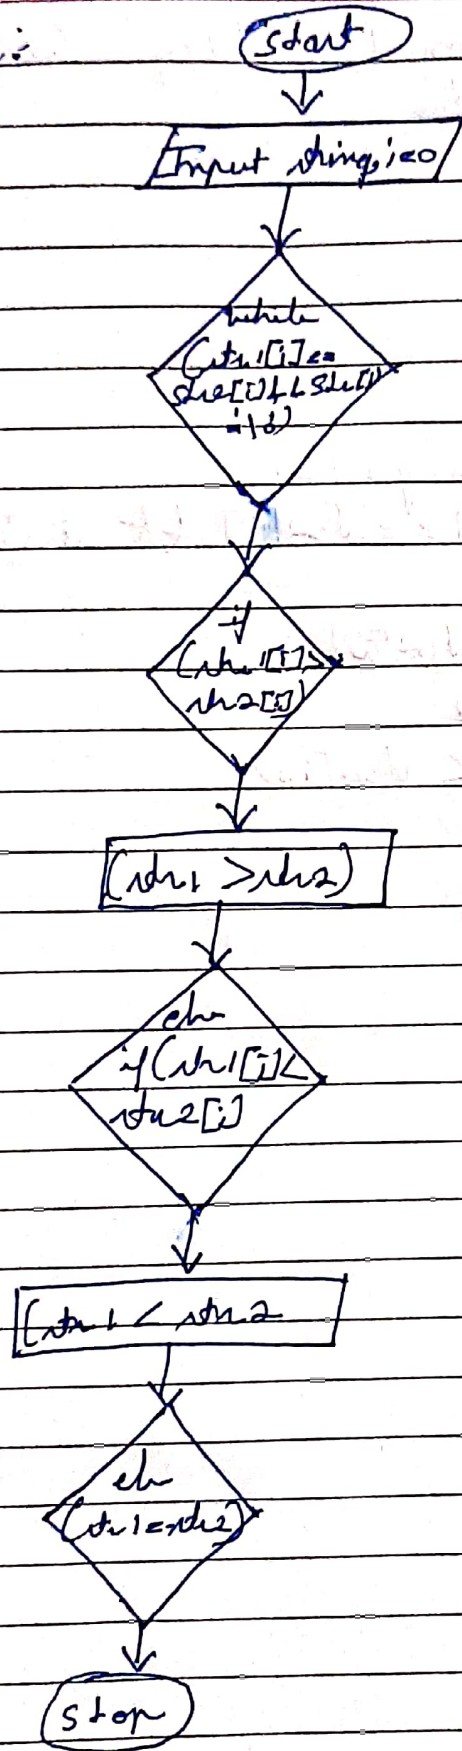 start
Input string, i=0
while
(str1[i]==
str2[i] && str[i]
=\0)
if
(str1[i]>
str2[i])
(str1 > str2)
else
if(str1[i]<
str2[i]
(str1 < str2
else
(str1=str2)
stop